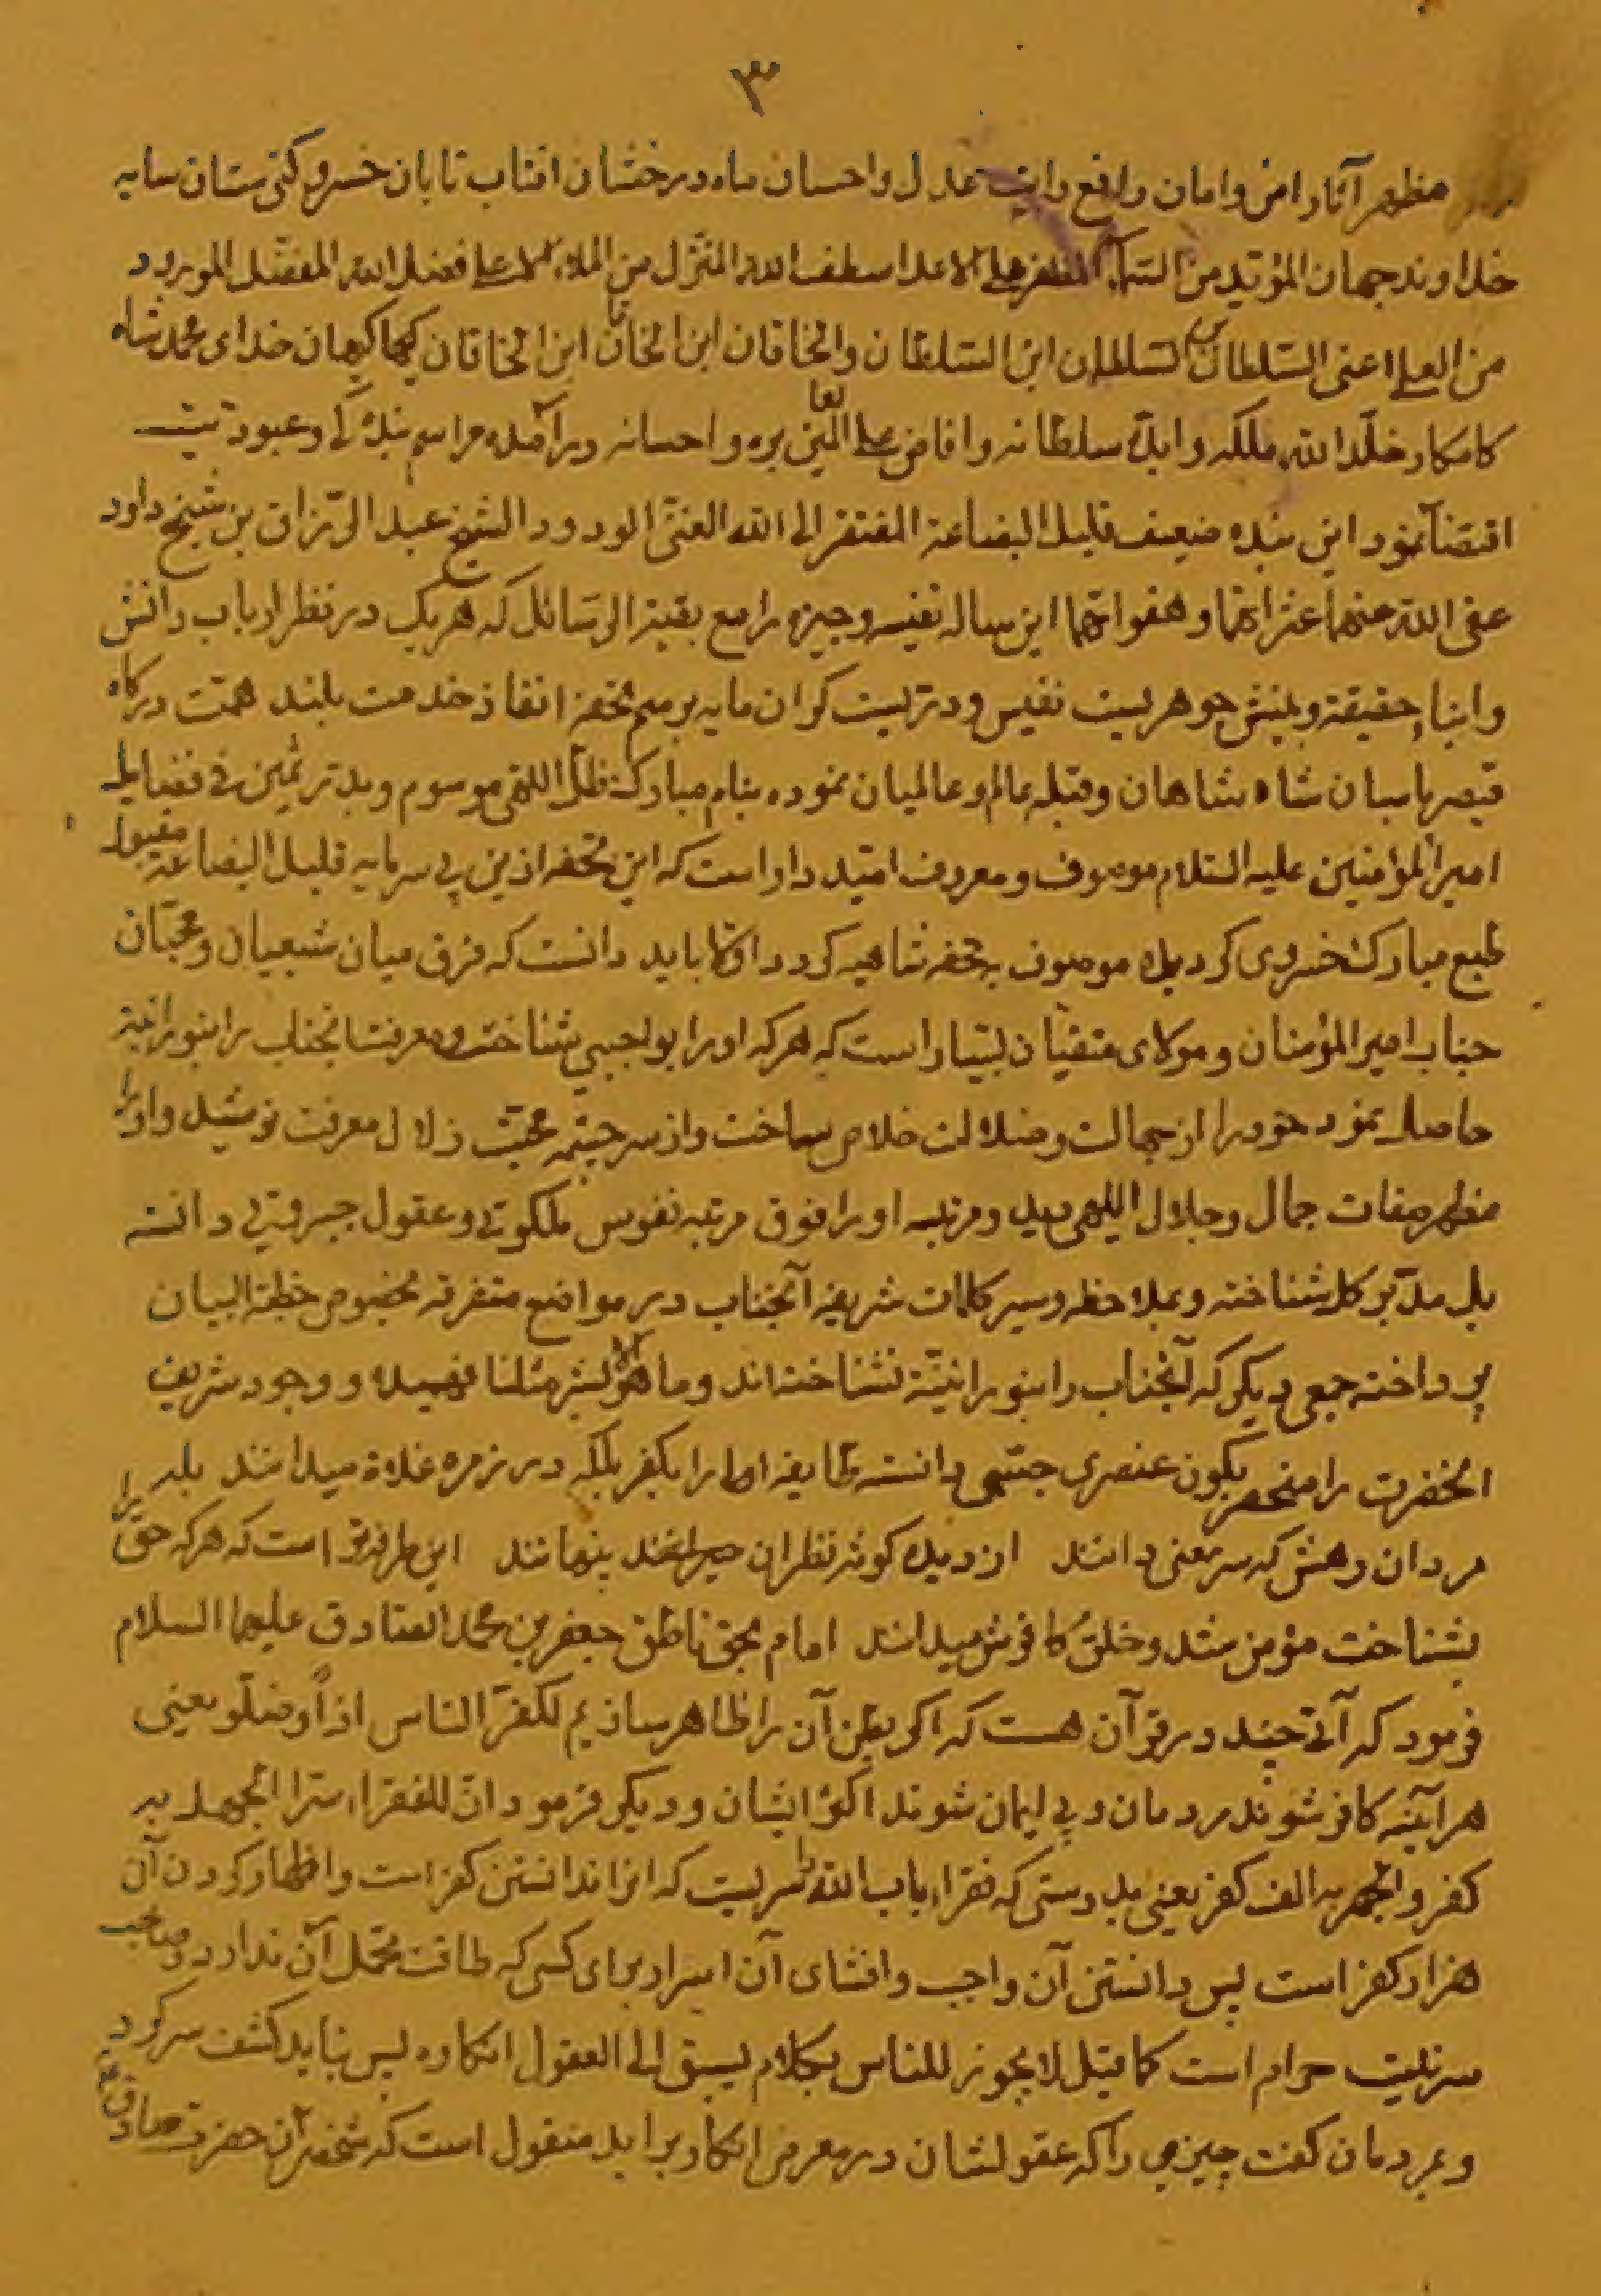 ٣
مظهر آثار امن و امان رافع رایت عدل و احسان ماه درخشان افتاب تابان خسرو کتی ستان سایه
خداوند جهان المؤتید من السمآء المظفر علی الاعدا سطف الله المنزل من الملاء علی فضل الله المفضل المورود
من العلی اعنی السّلطان بن السّلطان ابن السّلطان والخاقان ابن الخاقان ابن الخاقان کیهان خدای محمد شاه
کامکار خلّد الله ملکه وابدّ سلطانه وافاض علی العالمین بره واحسانه درآمده مراسم بندکی وعبودیت
اقتضآ نمود این بنده ضعیف قلیل البضاعة المفتقر الی الله الغنیّ الودود الشیخ عبد الرّزاق بن شیخ داود
عفی الله عنهما عثراتهما وهفواتهما این رساله نفیسه وجیزه را مع بقیة الرسائل که هریک در نظر ارباب دانش
وابناء حقیقة و بینش جوهریست نفیس ودرّیست کران مایه برسم تحفه انفاذ خدمت بلند همّت درکاه
قیصر پاسبان شاه شاهان وقبله عالم وعالمیان نموده بنام مبارک ظلّ اللهی موسوم وبدرّ ثمین فی فضایل
امیر المؤمنین علیه السّلام موصوف ومعروف امّید دار است که این تحفه ازین بی سرمایه قلیل البضاعة مقبول
طبع مبارک خسروی کردیده موصوف بتحفه شاهیه کردد اولا باید دانست که فرق میان شیعیان ومحبّان
جناب امیر المؤمنان ومولای متقیان بسیار است که هرکه او را بواجبی شناخت ومعرفت انجناب را بنورانیة
حاصل نمود خود را از جهالت وضلالت خلاص ساخت واز سرچشمه محبّت زلال معرفت نوشید واو را
مظهر صفات جمال وجلال اللهی دید ومرتبه او را فوق مرتبه نفوس ملکوتی وعقول جبروتی دانسته
بل مدبّر کل شناخته وبملاحظه وسیر کلمات شریفه آنجناب در مواضع متفرقه مخصوص خطبة البیان
پرداخته جمعی دیکر که آنجناب را بنورانیّة نشناخته اند وما هو الا بشر مثلنا فهمیده ووجود شریف
انحضرت را منحصر بکون عنصری جسمی دانسته طایفه اولی را بکفر بلکه در زمره غلاة میدانند بلی
مردان رهش که سرّ معنی دانند از دیده کوته نظران پنهانند این طرفه تر است که هرکه حق را
بشناخت مؤمن شد وخلق کافرش میدانند امام بحق ناطق جعفر بن محمد الصّادق علیهما السلام
فرمود که آیتی چند در قرآن هست که اکر بطن آن را ظاهر سازیم لکفّر الناس اذاً وضلّو یعنی
هرآینه کافر شوند مردمان وبی ایمان شوند اکثر ایشان ودیکر فرمود انّ للفقراء سرّا الجهل به
کفر والجهر به الف کفر یعنی بدرستی که فقراء باب الله را سرّیست که انرا ندانستن کفر است واظهار کردن آن
هزار کفر است پس دانستن آن واجب وافشای آن اسرار برای کسی که طاقت تحمّل آن ندارد وصاحب
سرّ نیست حرام است کما قیل لا یجوز للناس بکلام یسبق الی العقول انکاره پس نباید کشف سر کرد
وبمردمان کفت چیزی را که عقولشان در معرض انکار برآید منقول است که شخصی از حضرت صادق ع